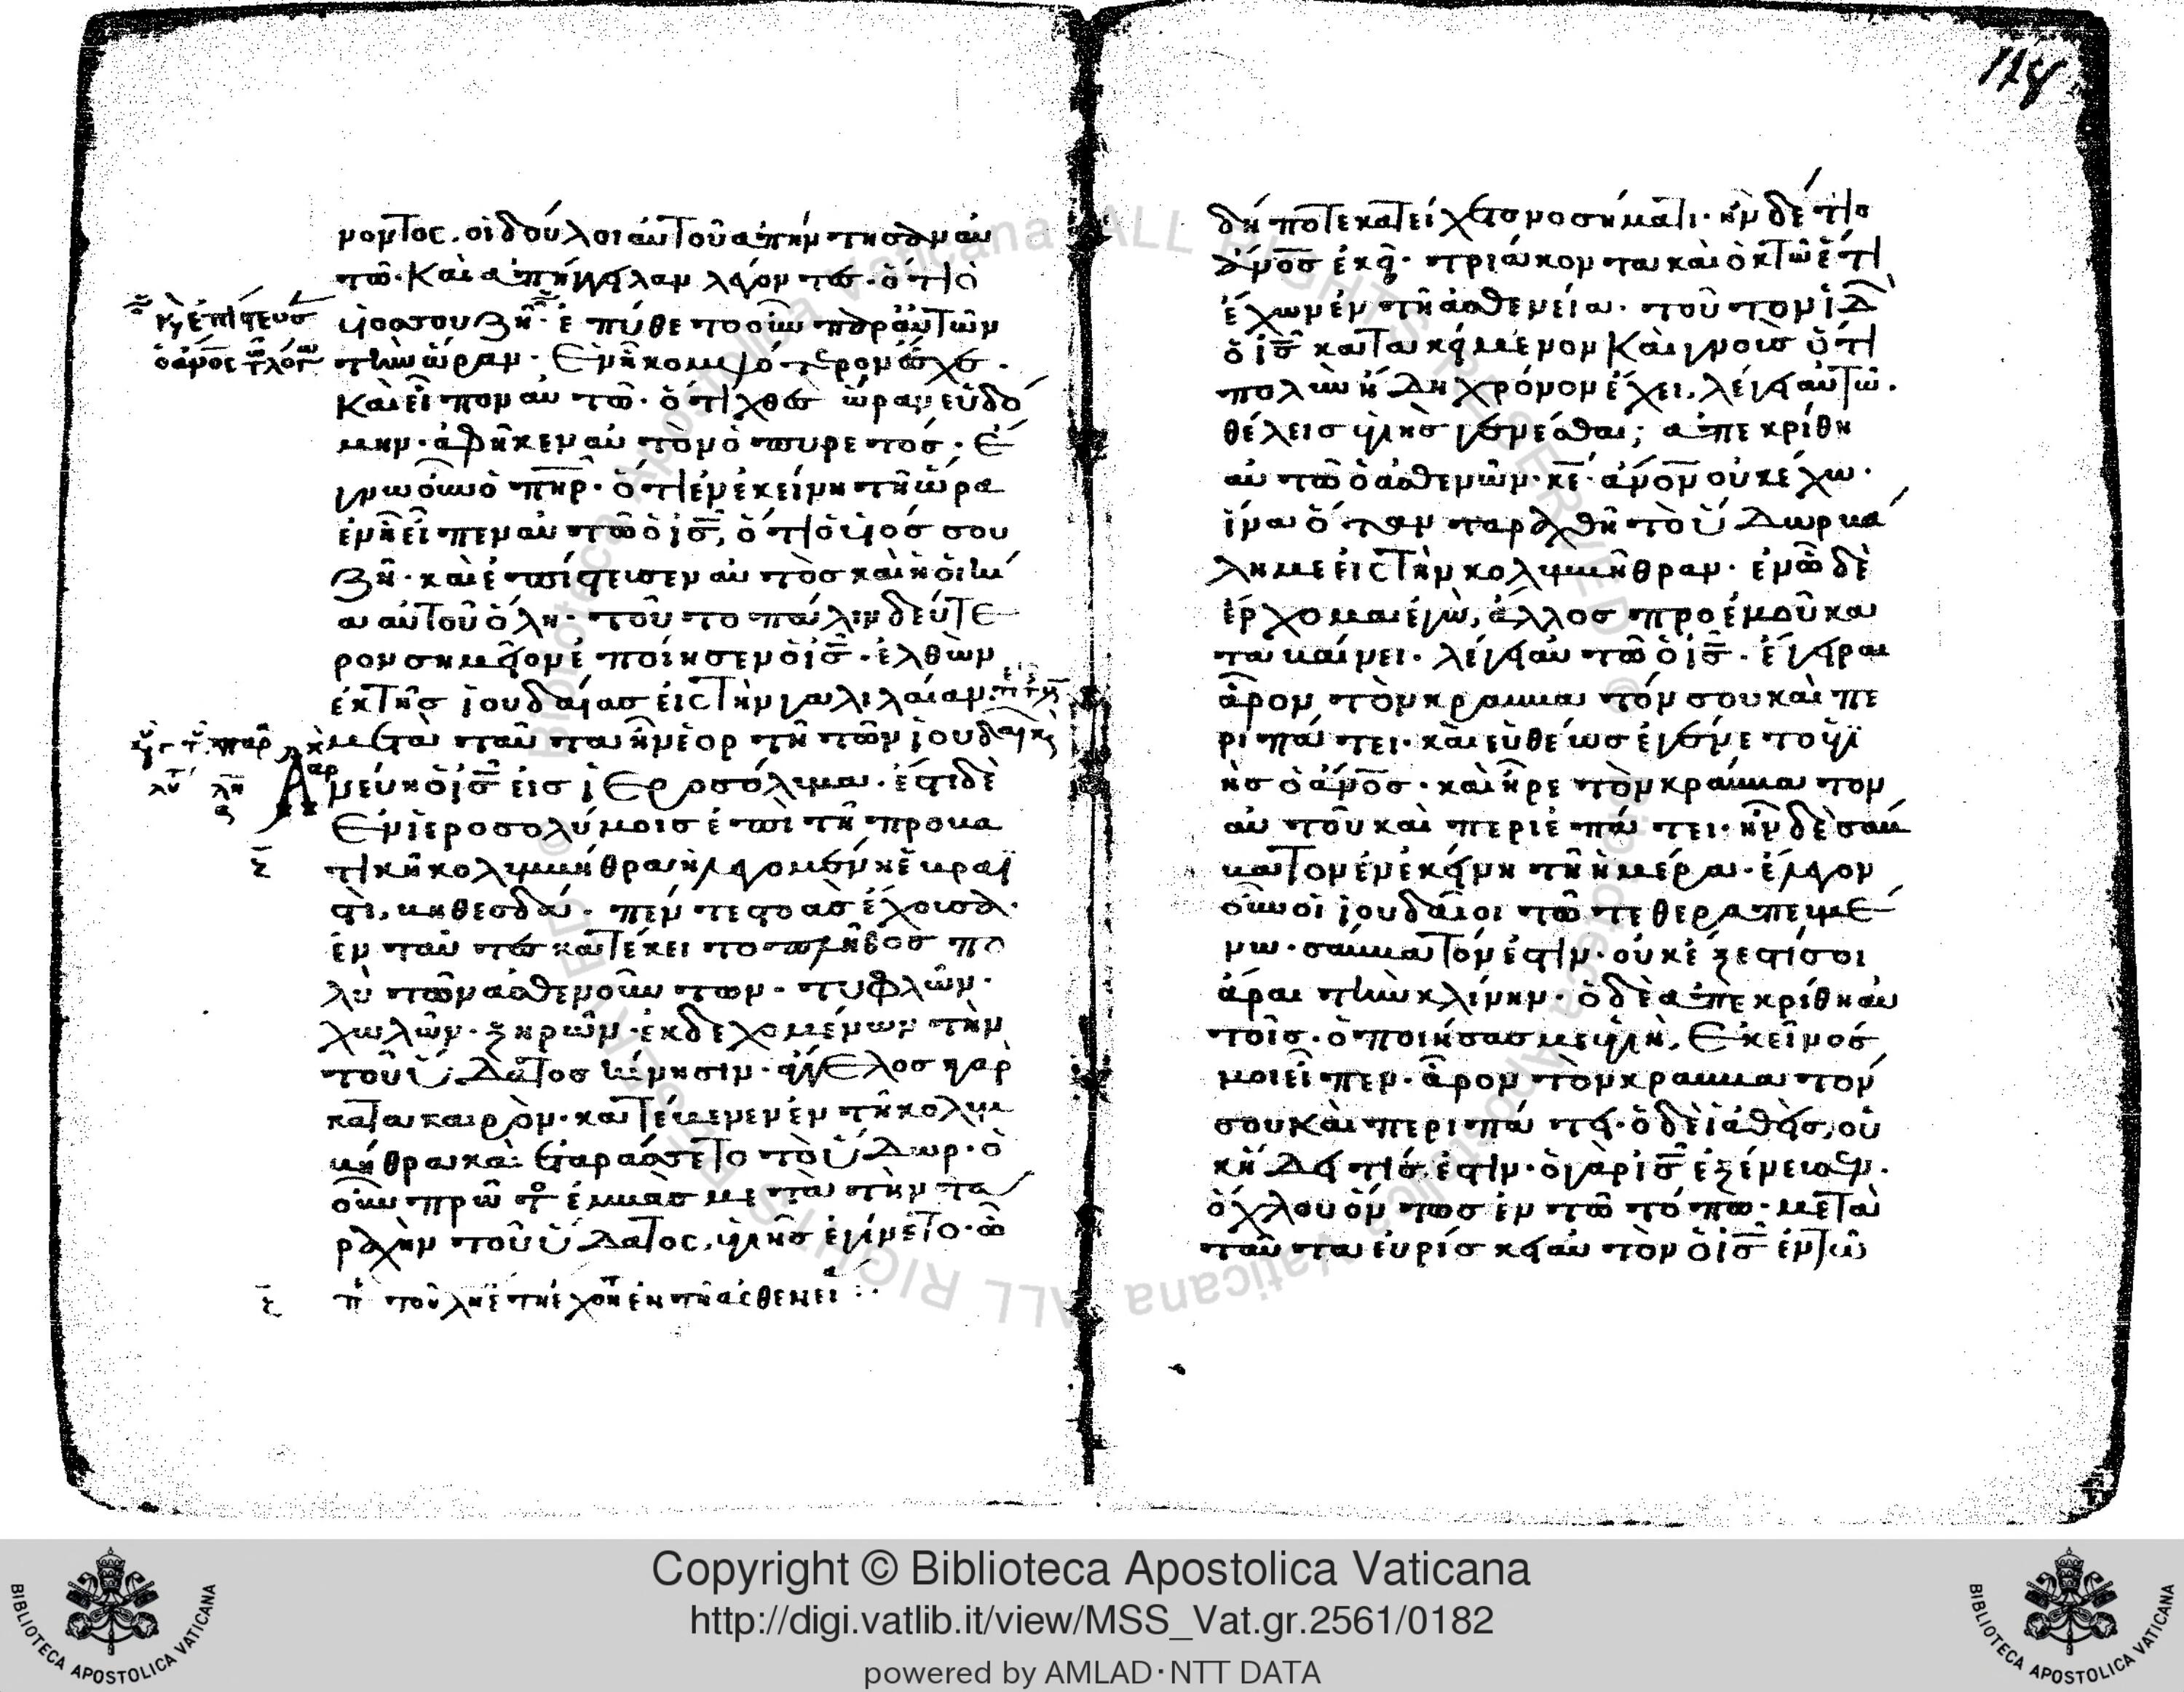 νοντος. οἱ δοῦλοι αὐτοῦ ἀπήντησαν αὐ
τῶ. Καὶ ἀπήγγειλαν λέγοντες. ὅτι ὁ
υἱός σου ζῆ. ἐπύθετο οὖν παρ αὐτῶν
τὴν ὥραν. Ἐν ἧ κομψότερον ἔσχε.
Καὶ εἶπον αὐτῶ. ὅτι χθὲς ὥραν εὐδό
μην. ἀφῆκεν αὐτὸν ὁ πυρετός. Ἔ
γνω οὖν ὁ πηρ. ὅτι ἐν ἐκείνη τῆ ὥρα
ἐν ἧ εἶπεν αὐτῶ ὁ ις, ὅτι ὁ υἱός σου
ζῆ. καὶ ἐπίστευσεν αὐτὸς καὶ ἡ οἰκί
α αὐτοῦ ὅλη. τοῦτο πάλιν δεύτε
ρον σημεῖον ἐποίησεν ὁ ις. ἐλθὼν
ἐκ τῆς ἰουδαίας εἰς τὴν γαλιλαίαν.
μετὰ ταῦτα ἦν ἑορτὴ τῶν ἰουδαίων
Ανεύη ὁ ις εἰς ἱεροσόλυμα. ἔστι δὲ
Ἐν ἱεροσολύμοις ἐπὶ τῆ προβα
τικῆ κολυμβήθρα ἡ λεγομένη ἑβραϊ
στὶ, βηθεσδά. πέντε στοὰς ἔχουσα.
ἐν ταύταις κατέκειτο πλῆθος πο
λὺ τῶν ἀσθενούντων. τυφλῶν.
χωλῶν. ξηρῶν. ἐκδεχομένων τὴν
τοῦ ὕδατος κίνησιν. ἄγγελος γὰρ
κατὰ καιρὸν. κατέβαινεν ἐν τῆ κολυμ
βήθρα καὶ ἐταράσσετο τὸ ὕδωρ. ὁ
οὖν πρῶτος ἐμβὰς μετὰ τὴν τα
ραχὴν τοῦ ὕδατος, ὑγιὴς ἐγίνετο. ὧ
δήποτε κατείχετο νοσήματι. ἦν δέ τις
ανος ἐκεῖ. τριάκοντα καὶ ὀκτὼ ἔτη
ἔχων ἐν τῆ ἀσθενεία. τοῦτον ἰδὼν
ὁ ις κατακείμενον Καὶ γνοὺς ὅτι
πολὺν ἤδη χρόνον ἔχει, λέγει αὐτῶ.
θέλεις ὑγιὴς γενέσθαι; ἀπεκρίθη
αὐτῶ ὁ ἀσθενῶν. κε. ἄνον οὐκ ἔχω.
ἵνα ὅταν ταραχθῆ τὸ ὕδωρ βά
λη με εἰς τὴν κολυμβήθραν. ἐν ὧ δὲ
ἔρχομαι ἐγὼ, ἄλλος πρὸ ἐμοῦ κα
ταβαίνει. λέγει αὐτῶ ὁ ις. ἔγειραι
ἆρον τὸν κράββατόν σου καὶ πε
ριπάτει. καὶ εὐθέως ἐγένετο ὑγι
ὴς ὁ ανος. καὶ ἦρε τὸν κράββατον
αὐτοῦ καὶ περιεπάτει. ἦν δὲ σάβ
βατον ἐν ἐκείνη τῆ ἡμέρα. ἔλεγον
οὖν οἱ ἰουδαῖοι τῶ τεθεραπευμέ
νω. σάββατόν ἐστιν. οὐκ ἔξεστί σοι
ἆραι τὴν κλίνην. ὁ δὲ ἀπεκρίθη αὐ
τοῖς. ὁ ποιήσας με ὑγιῆ, Ἐκεῖνός
μοι εἶπεν. ἆρον τὸν κράββατόν
σου Καὶ περιπάτει. ὁ δὲ ἰαθεὶς, οὐ
κ ἤδει τίς ἐστιν. ὁ γὰρ ις ἐξένευσεν.
ὄχλου ὄντος ἐν τῶ τόπω. μετὰ
ταῦτα εὑρίσκει αὐτὸν ὁ ις ἐν τῶ
Copyright © Biblioteca Apostolica Vaticana
http://digi.vatlib.it/view/MSS_Vat.gr.2561/0182
powered by AMLAD·NTT DATA
BIBLIOTECA APOSTOLICA VATICANA
BIBLIOTECA APOSTOLICA VATICANA